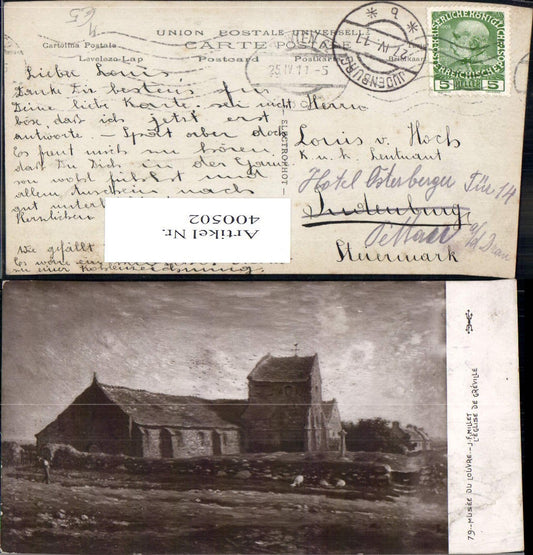 65
UNION POSTALE UNIVERSELLE
CARTE POSTALE
Cartolina Postale
Levelezo-Lap
Postcard
Postkarte
JUDENBURG
27 IV 11
* b *
25.IV.11-5
5 HELLER 5
ELECTROPHOT
Liebe Louis
Danke Dir bestens für
Deine liebe Karte. sei nicht
böse daß ich jetzt erst
antworte. – Spät aber doch
Es freut mich zu hören,
daß Du Dich in der
so wohl fühlst und
allem Anschein nach
gut
Herzlichen
Wie gefällt
Es wäre
zu einer Kohlenzeichnung.
Herrn
Louis v. Hoch
K. u. k. Leutnant
Hotel Osterberger Tür 14
Judenburg
Pettau a/d Drau
Steuermark
Artikel Nr.
400502
79 - MUSÉE DU LOUVRE - J. F. MILLET
L'EGLISE DE GRÉVILLE